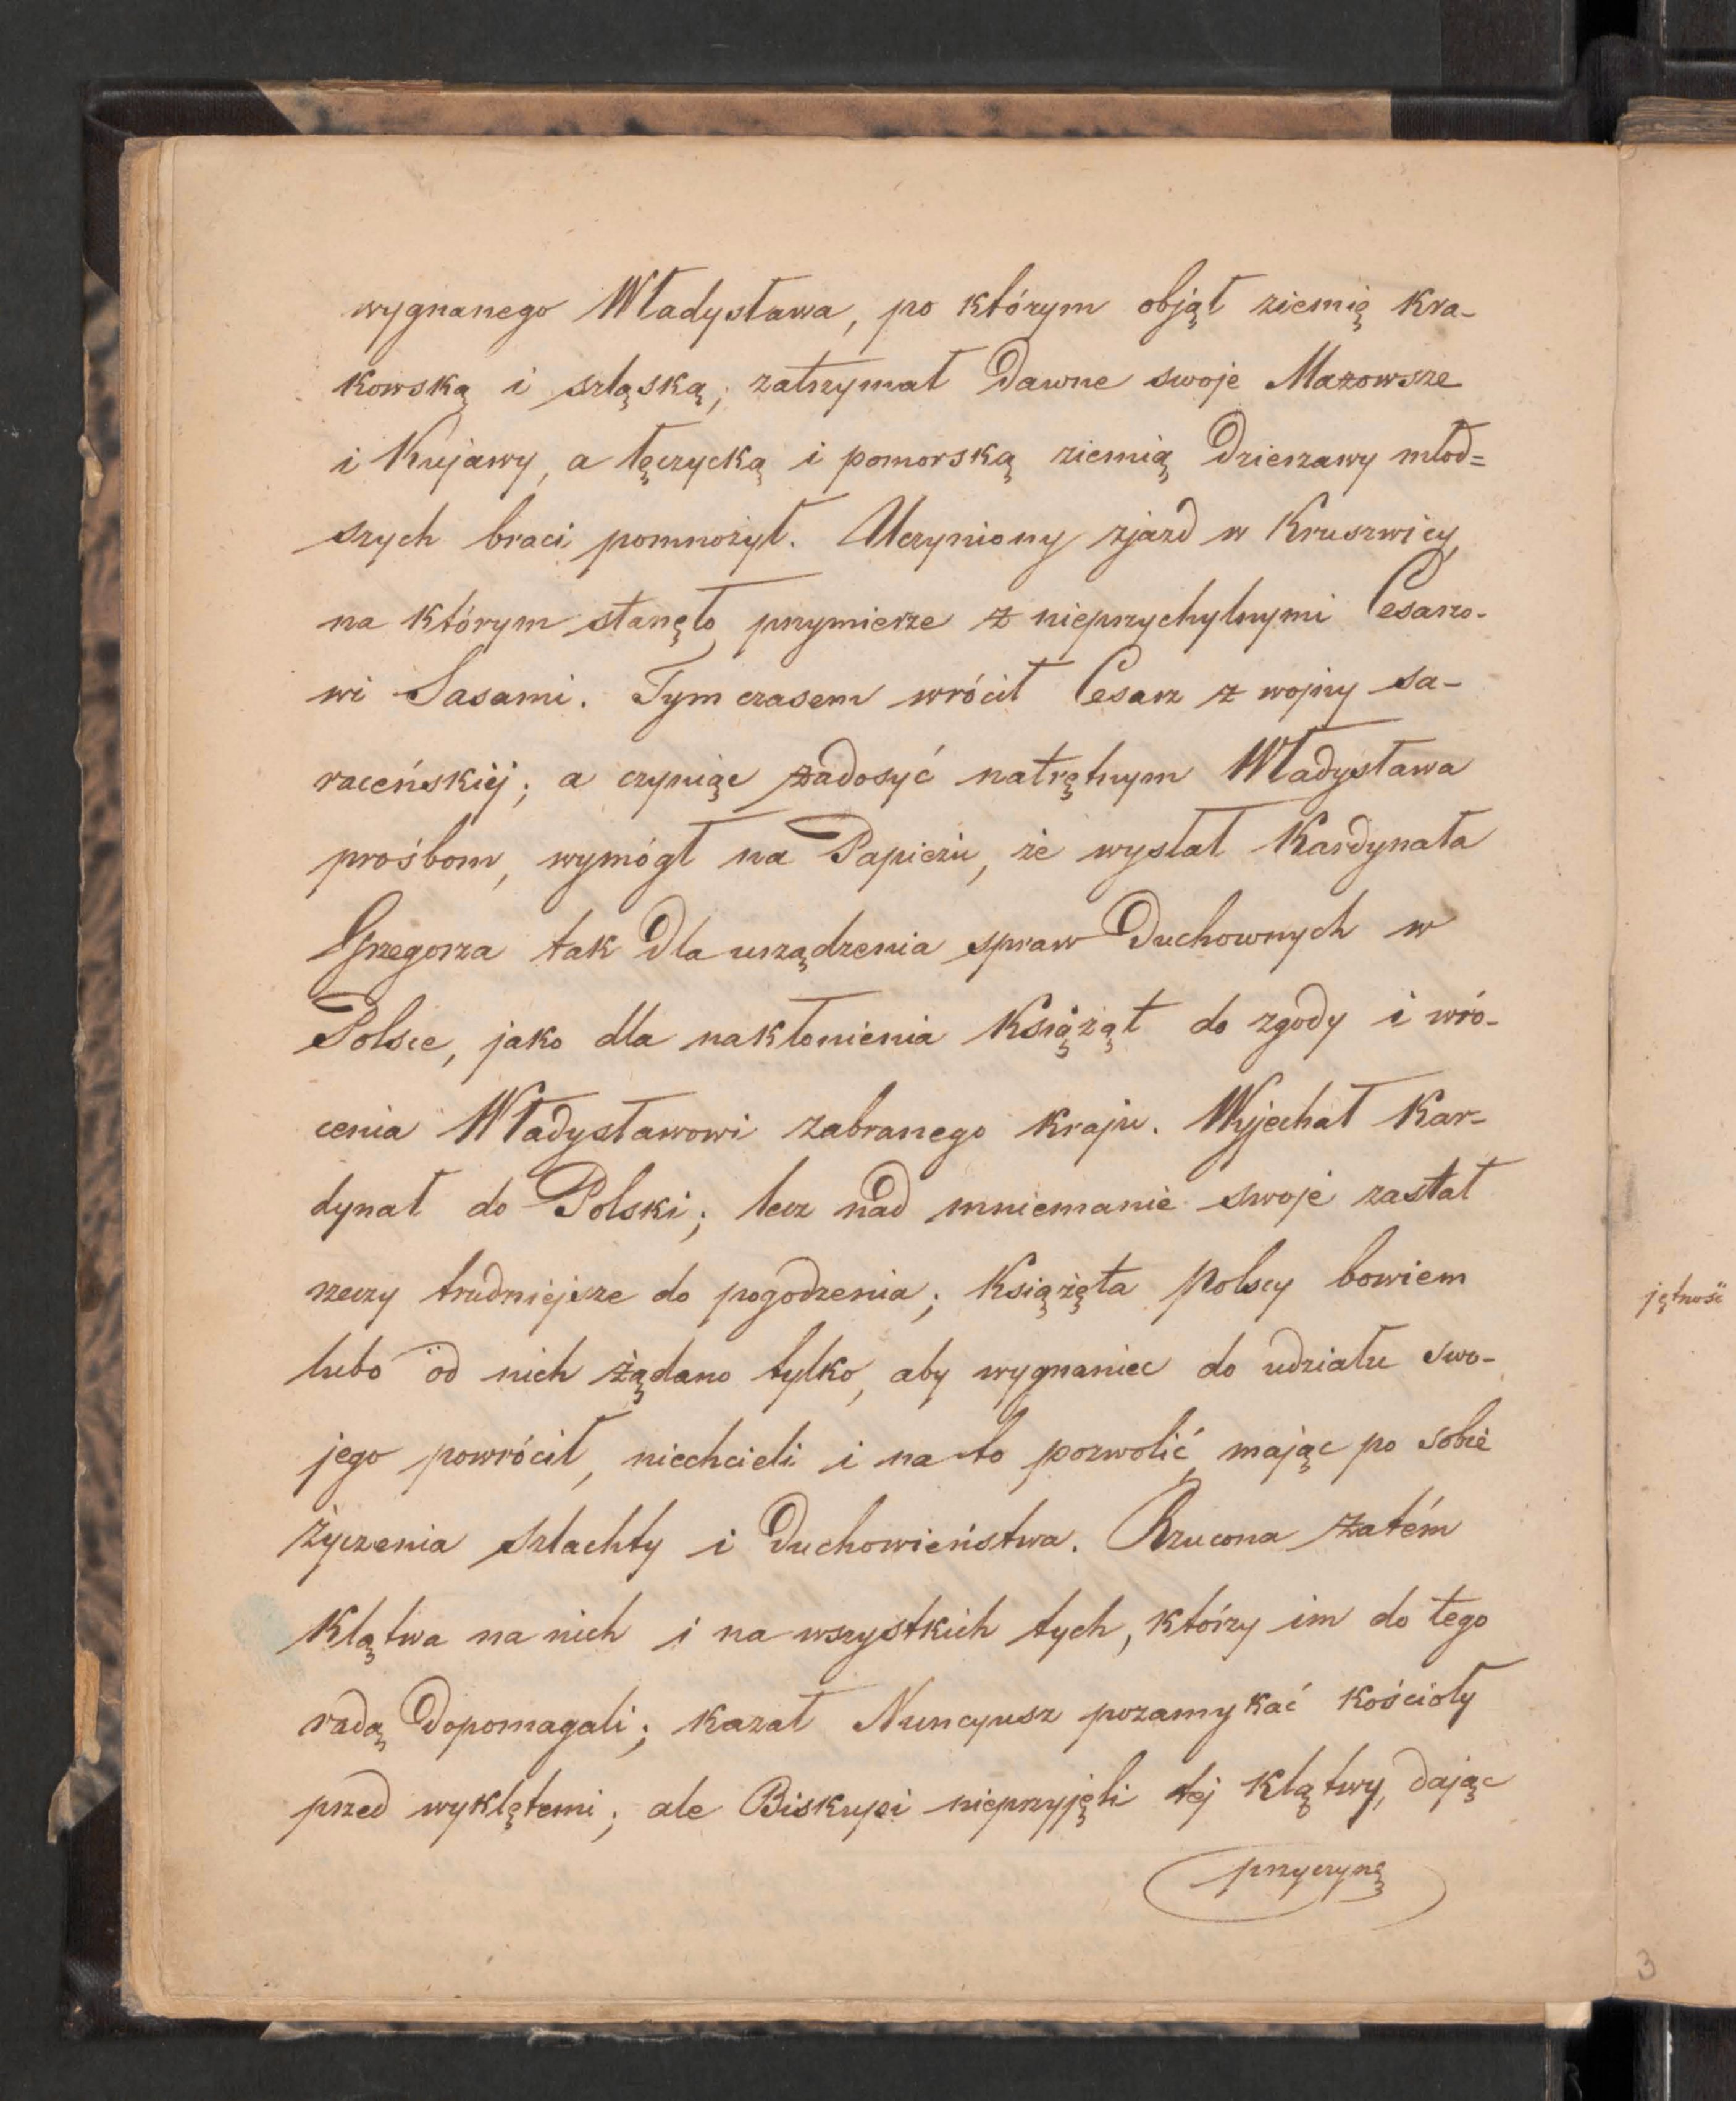 wygnanego Władysława, po którym objął ziemię kra-
kowską i szląską, zatrzymał dawne swoje Mazowsze
i Kujawy, a łęczycką i pomorską ziemią dzierżawy młod=
szych braci pomnożył. Uczyniony zjazd w Kruszwicy,
na którym stanęło przymierze z nieprzychylnymi Cesarzo-
wi Sasami. Tym czasem wrócił Cesarz z wojny sa-
raceńskiéj; a czyniąc zadosyć natrętnym Władysława
prośbom, wymógł na Papieżu, że wysłał Kardynała
Grzegorza tak dla urządzenia spraw Duchownych w
Polsce, jako dla nakłonienia Książąt do zgody i wró-
cenia Władysławowi zabranego kraju. Wyjechał Kar-
dynał do Polski; lecz nad mniemanie swoje zastał
rzeczy trudniejsze do pogodzenia; Książęta Polscy bowiem
lubo od nich żądano tylko, aby wygnaniec do udziału swo-
jego powrócił, niechcieli i na to pozwolić, mając po sobie
życzenia szlachty i Duchowieństwa. Rzucona zatém
klątwa na nich i na wszystkich tych, którzy im do tego
radą dopomagali; kazał Nuncyusz pozamykać kościoły
przed wyklętemi; ale Biskupi nieprzyjęli tej klątwy, dając
przyczynę
jętność
3